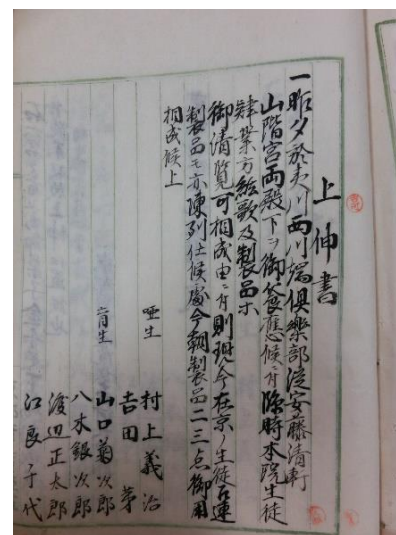 上伸書
一昨夕於夷川西川端倶樂部従安藤清軒
山階宮両殿下ヲ御饗應候ニ付臨時本院生徒
肄業方絵歌及製品等
御清覧可相成由ニ付則現今在京ノ生徒召連
製品モ亦陳列仕候處今朝製品二三点御用
相成候上
唖生
村上義治
吉田茅
盲生
山口菊次郎
八木銀次郎
渡辺正太郎
江良千代